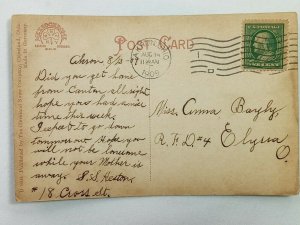 POST CARD
AKRON, OHIO
AUG 14
11:30 AM
1909
Akron 8/13 - 09
Did you get home
from Canton all right
hope you had a nice
time this week.
I expect to go soon
tomorrow. Hope you
will not be lonesome
while your Mother is
away. S.S. Heston
# 18 Cross St.
Miss Anna Bayly
R.F.D. #4
Elyria
O.